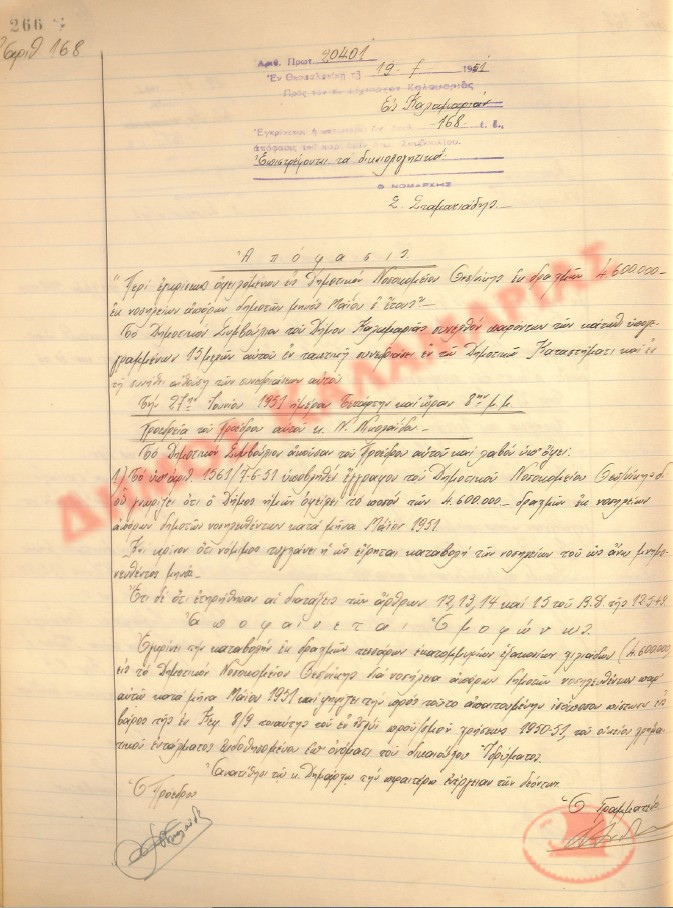 266
Ἀριθ 168
Ἀριθ. Πρωτ. 20401
Ἐν Θεσσαλονίκῃ τῇ 19-7 1951
Πρὸς τὸν κ. Δήμαρχον Καλαμαριᾶς
Εἰς Καλαμαριάν
168 ἐ. ἔ.,
Ἐγκρίνεται
ἀπόφασις τοῦ Συμβουλίου.
Ἐπιστρέφονται τὰ δικαιολογητικά
Ὁ ΝΟΜΑΡΧΗΣ
Σ. Σταματιάδης
Ἀπόφασις.
"Περὶ ἐγκρίσεως ὀφειλομένων εἰς Δημοτικὸν Νοσοκομεῖον Θεσ/νίκης ἐκ δραχμῶν 4.600.000-
ἐκ νοσηλείων ἀπόρων δημοτῶν μηνὸς Μαΐου ἐ. ἔτους"
Τὸ Δημοτικὸν Συμβούλιον τοῦ Δήμου Καλαμαριᾶς συνελθὸν παρόντων τῶν κάτωθι ὑπογε-
γραμμένων 15 μελῶν αὐτοῦ ἐν τακτικῇ συνεδριάσει ἐν τῷ Δημοτικῷ Καταστήματι καὶ ἐν
τῇ συνήθει αἰθούσῃ τῶν συνεδριάσεων αὐτοῦ
Τὴν 27ην Ἰουνίου 1951 ἡμέραν Τετάρτην καὶ ὥραν 8ην μ.μ.
Προεδρείᾳ τοῦ Προέδρου αὐτοῦ κ. Ν. Νικολαΐδου
Τὸ Δημοτικὸν Συμβούλιον ἀκοῦσαν τοῦ Προέδρου αὐτοῦ καὶ λαβὸν ὑπ' ὄψει:
1) Τὸ ὑπ' ἀριθ. 1561/7-6-51 ὑποβληθὲν ἔγγραφον τοῦ Δημοτικοῦ Νοσοκομείου Θεσ/νίκης δι'
οὗ γνωρίζει ὅτι ὁ Δῆμος ἡμῶν ὀφείλει τὸ ποσὸν τῶν 4.600.000- δραχμῶν ἐκ νοσηλείων
ἀπόρων δημοτῶν νοσηλευθέντων κατὰ μῆνα Μάϊον 1951.
Καὶ κρῖνον ὅτι νόμιμος τυγχάνει ἡ ὡς εἴρηται καταβολὴ τῶν νοσηλείων τοῦ ὡς ἄνω μνημο-
νευθέντος μηνός.
Ἔτι δὲ ὅτι ἐτηρήθησαν αἱ διατάξεις τῶν ἄρθρων 12, 13, 14 καὶ 15 τοῦ Β.Δ. τῆς 12-5-49.
Ἀποφαίνεται Ὁμοφώνως.
Ἐγκρίνει τὴν καταβολὴν ἐκ δραχμῶν τεσσάρων ἑκατομμυρίων ἑξακοσίων χιλιάδων (4.600.000)
εἰς τὸ Δημοτικὸν Νοσοκομεῖον Θεσ/νίκης διὰ νοσήλεια ἀπόρων δημοτῶν νοσηλευθέντων παρ'
αὐτῷ κατὰ μῆνα Μάϊον 1951 καὶ ψηφίζει τὴν πρὸς τοῦτο ἀπαιτουμένην ἰσόποσον πίστωσιν εἰς
βάρος τῆς ἐν Κεφ. 8/9 τοιαύτης τοῦ ἐν ἰσχύϊ προϋ/σμοῦ χρήσεως 1950-51, τοῦ οἰκείου χρημα-
τικοῦ ἐντάλματος ἐκδοθησομένου ἐπ' ὀνόματι τοῦ δικαιούχου Ἱδρύματος.
Ἀνατίθησι τῷ κ. Δημάρχῳ τὴν περαιτέρω ἐνέργειαν τῶν δεόντων.
Ὁ Πρόεδρος
Ὁ Γραμματεύς
ΔΗΜΟΣ ΚΑΛΑΜΑΡΙΑΣ